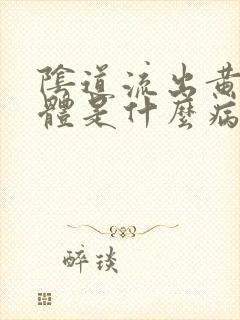 陰道流出黄
體是什麼病
醉琰